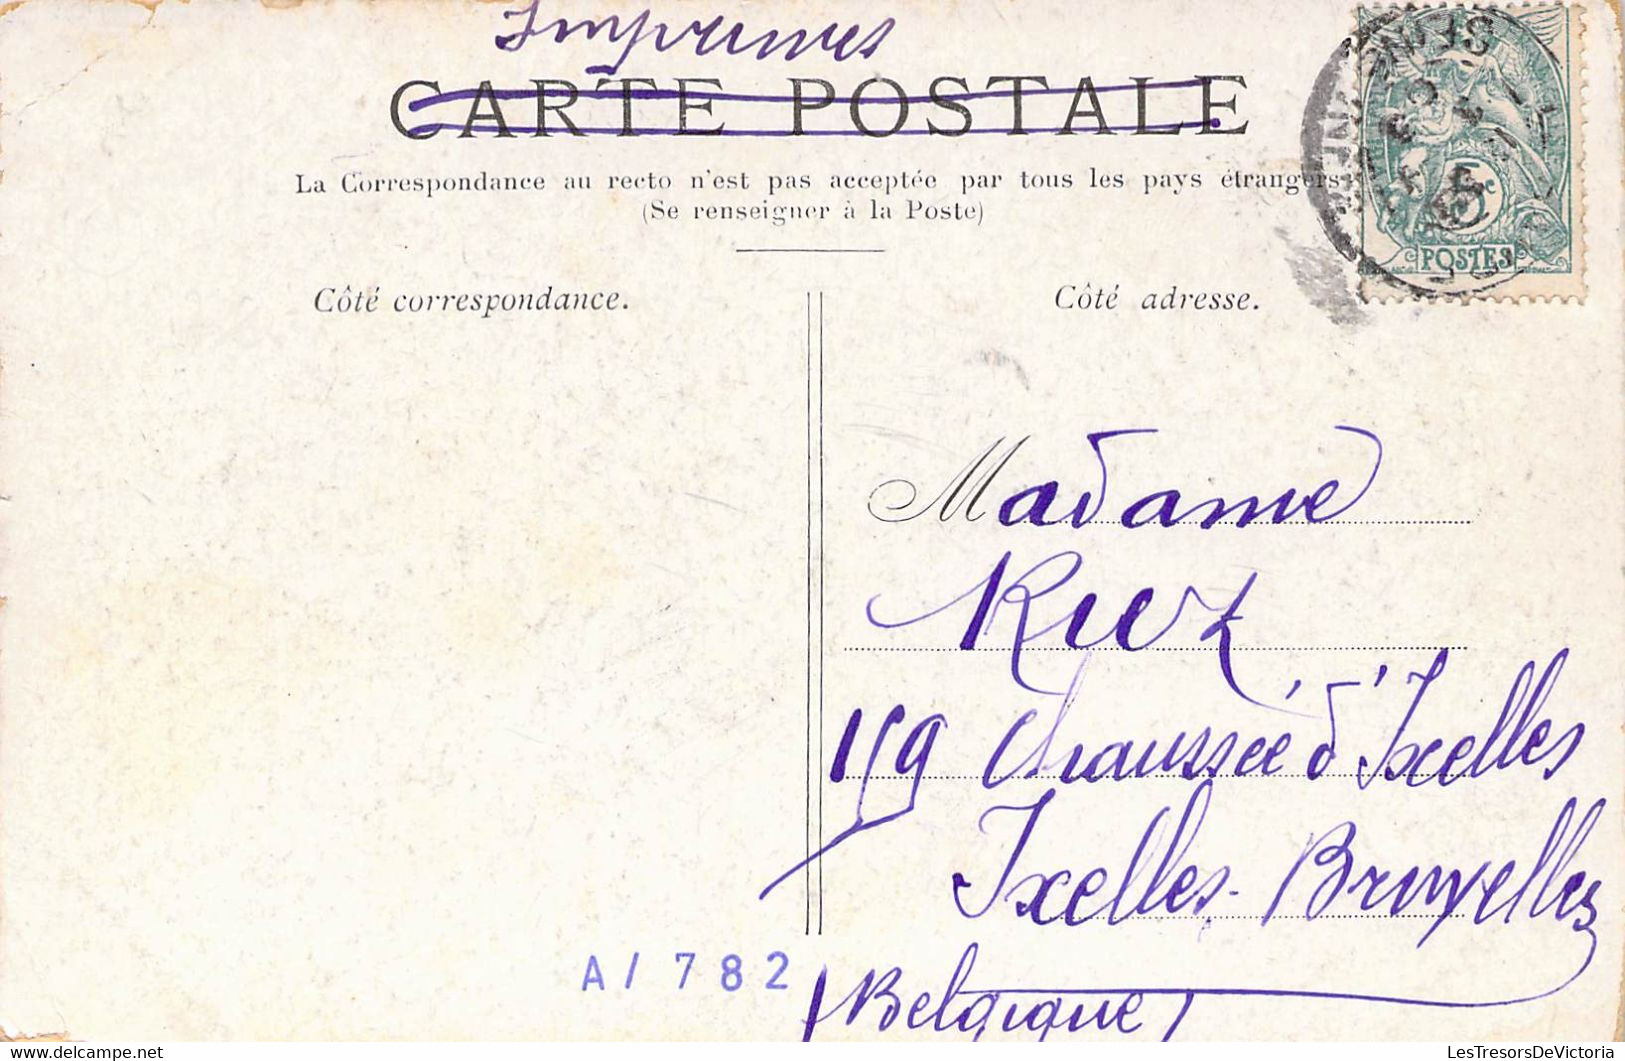 Imprimés
CARTE POSTALE
La Correspondance au recto n'est pas acceptée par tous les pays étrangers
(Se renseigner à la Poste)
Côté correspondance.
Côté adresse.
5c
POSTES
Madame
159 Chaussée d'Ixelles
Ixelles-Bruxelles
(Belgique)
A/ 782
LesTresorsDeVictoria